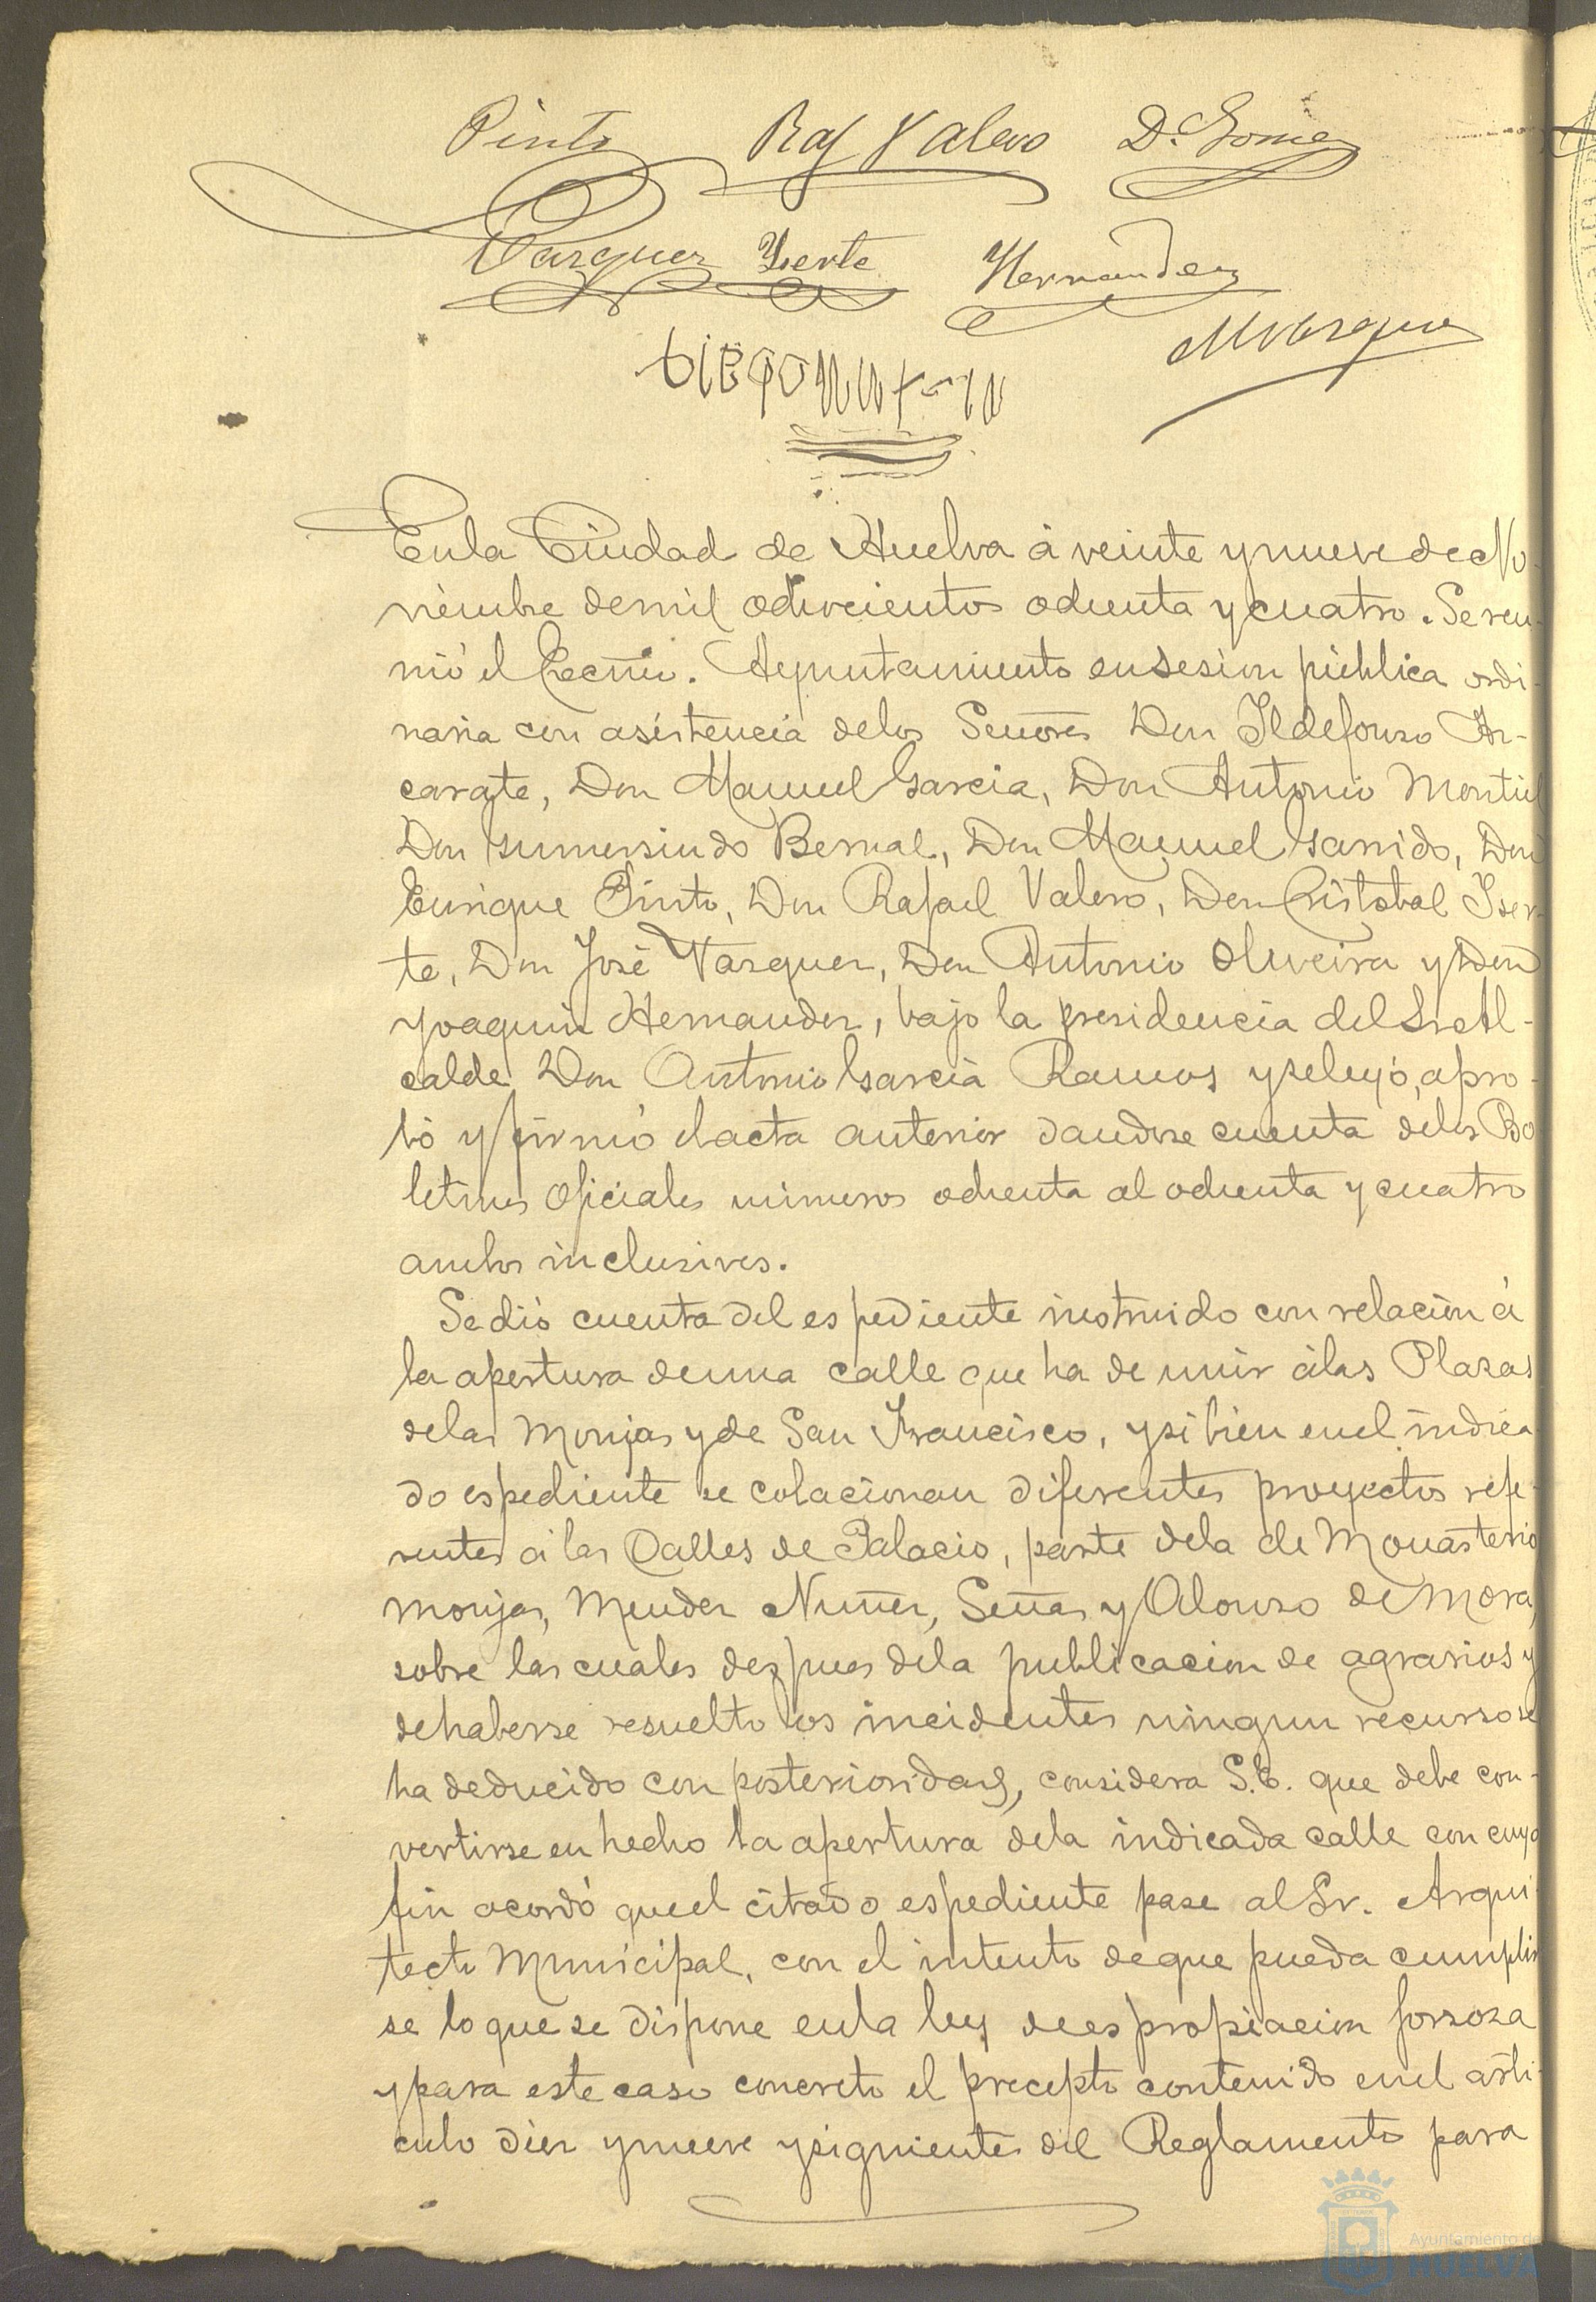 Pinto Raf Valero D. Gomez
Vazquez Iserte Hernandez
MVazquez
DIEGO
En la Ciudad de Huelva á veinte y nueve de No-
viembre de mil ochocientos ochenta y cuatro. Se reu-
nió el Excmo. Ayuntamiento en sesion pública ordi-
naria con asistencia de los Señores Don Ildefonso Az-
carate, Don Manuel Garcia, Don Antonio Montiel
Don Gumersindo Bernal, Don Manuel Garrido, Don
Enrique Pinto, Don Rafael Valero, Don Cristobal Iser-
te, Don José Vazquez, Don Antonio Oliveira y Don
Joaquin Hernandez, bajo la presidencia del Sr. Al-
calde Don Antonio Garcia Ramos y se leyó, apro-
bó y firmó el acta anterior dandose cuenta de los Bo
letines Oficiales números ochenta al ochenta y cuatro
ambos inclusives.
Se dió cuenta del espediente instruido con relación á
la apertura de una calle que ha de unir á las Plazas
de las Monjas y de San Francisco, y si bien en el indica
do espediente se colacionan diferentes proyectos refe-
rentes á las Calles de Palacio, parte de la de Monasterio
Monjas, Mendez Nuñez, Señas y Alonso de Mora,
sobre las cuales despues de la publicacion de agravios y
de haberse resuelto los incidentes ningun recurso se
ha deducido con posterioridad, considera S.E. que debe con-
vertirse en hecho la apertura de la indicada calle con cuyo
fin acordó que el citado espediente pase al Sr. Arqui-
tecto Municipal, con el intento de que pueda cumplir
se lo que se dispone en la ley de espropiacion forzosa
y para este caso concreto el precepto contenido en el arti-
culo diez y nueve y siguientes del Reglamento para
Ayuntamiento de
HUELVA